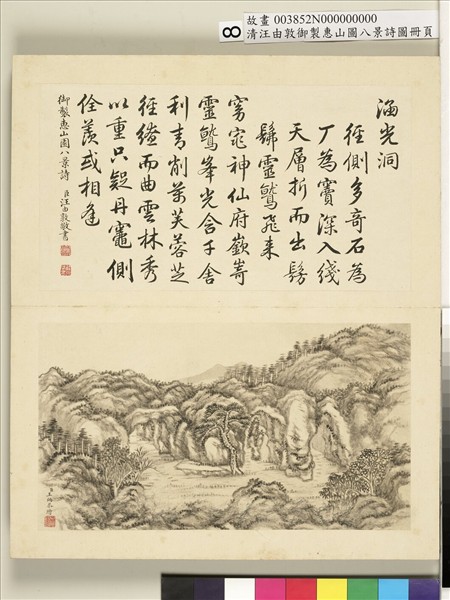 8
故畫 003852N000000000
清汪由敦御製惠山園八景詩圖冊頁
涵光洞
徑側多奇石為
厂為竇深入綫
天層折而出髣
髴靈鷲飛來
窈窕神仙府嶔嵜
靈鷲峯光含千舍
利青削萬芙蓉芝
徑繚而曲雲林秀
以重只疑丹竈側
佺羨或相逢
御製惠山園八景詩 臣汪由敦敬書
臣王炳恭繪